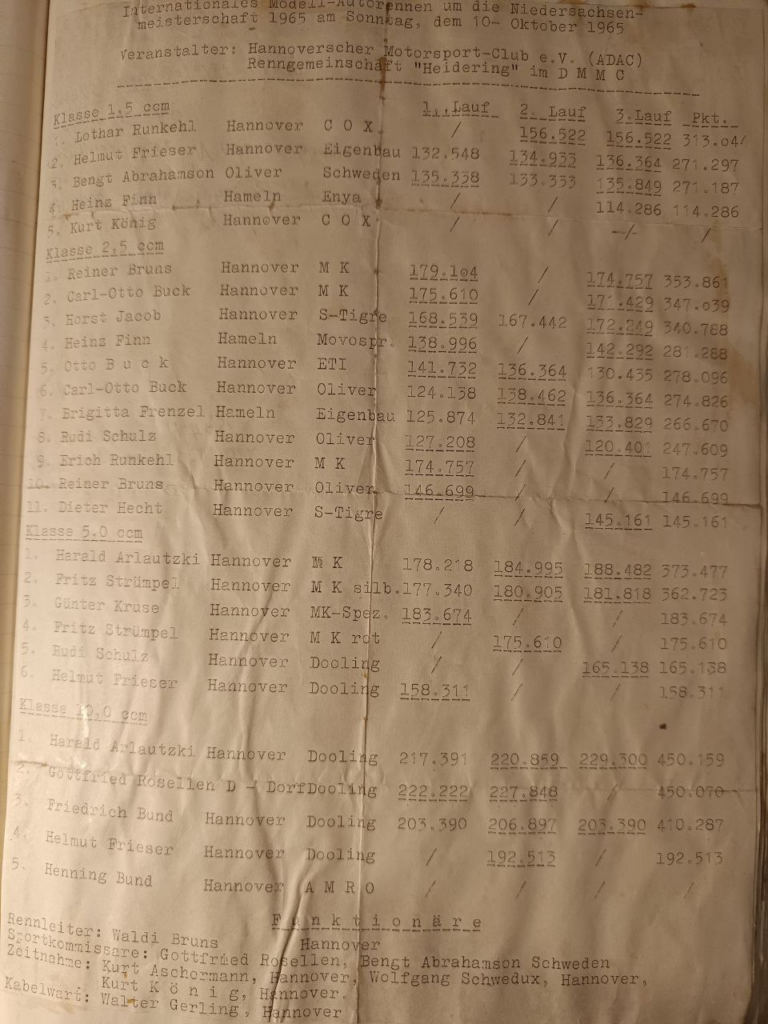 Internationales Modell-Autorennen um die Niedersachsen-
meisterschaft 1965 am Sonntag, dem 10- Oktober 1965
Veranstalter: Hannoverscher Motorsport-Club e.V. (ADAC)
Renngemeinschaft "Heidering" im D M M C
Klasse 1,5 ccm 1. Lauf 2. Lauf 3.Lauf Pkt.
Lothar Runkehl Hannover C O X / 156.522 156.522 313.04/
2. Helmut Frieser Hannover Eigenbau 132.548 134.933 136.364 271.297
3. Bengt Abrahamson Oliver Schweden 135.338 133.333 135.849 271.187
4. Heinz Finn Hameln Enya / / 114.286 114.286
5. Kurt König Hannover C O X / / -/- /
Klasse 2,5 ccm
1. Reiner Bruns Hannover M K 179.104 / 174.757 353.861
2. Carl-Otto Buck Hannover M K 175.610 / 171.429 347.039
3. Horst Jacob Hannover S-Tigre 168.539 167.442 172.249 340.788
4. Heinz Finn Hameln Movospr. 138.996 / 142.292 281.288
5. Otto B u c k Hannover ETI 141.732 136.364 130.435 278.096
6. Carl-Otto Buck Hannover Oliver 124.138 138.462 136.364 274.826
7. Brigitta Frenzel Hameln Eigenbau 125.874 132.841 133.829 266.670
8. Rudi Schulz Hannover Oliver 127.208 / 120.401 247.609
9. Erich Runkehl Hannover M K 174.757 / / 174.757
10. Reiner Bruns Hannover Oliver 146.699 / / 146.699
11. Dieter Hecht Hannover S-Tigre / / 145.161 145.161
Klasse 5.0 ccm
1. Harald Arlautzki Hannover M K 178.218 184.995 188.482 373.477
2. Fritz Strümpel Hannover M K silb. 177.340 180.905 181.818 362.723
3. Günter Kruse Hannover MK-Spez. 183.674 / / 183.674
4. Fritz Strümpel Hannover M K rot / 175.610 / 175.610
5. Rudi Schulz Hannover Dooling / / 165.138 165.138
6. Helmut Frieser Hannover Dooling 158.311 / / 158.311
Klasse 10,0 ccm
1. Harald Arlautzki Hannover Dooling 217.391 220.859 229.300 450.159
2. Gottfried Rosellen D - Dorf Dooling 222.222 227.848 / 450.070
3. Friedrich Bund Hannover Dooling 203.390 206.897 203.390 410.287
4. Helmut Frieser Hannover Dooling / 192.513 / 192.513
5. Henning Bund Hannover A M R O / / / /
F u n k t i o n ä r e
Rennleiter: Waldi Bruns Hannover
Sportkommissare: Gottfried Rosellen, Bengt Abrahamson Schweden
Zeitnahme: Kurt Aschermann, Hannover, Wolfgang Schwedux, Hannover,
Kurt K ö n i g, Hannover.
Kabelwart: Walter Gerling, Hannover